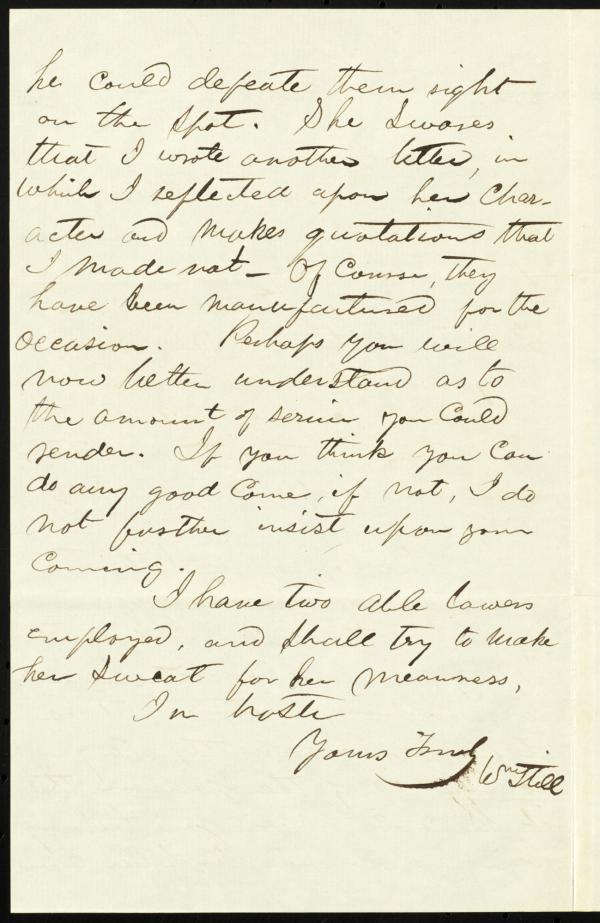 he could defeate them right
on the spot. She Swares
that I wrote another letter, in
which I reflected upon her Char-
acter and makes quotations that
I made not - Of Course, they
have been manufactured for the
occasion. Perhaps you will
now better understand as to
the amount of service you Could
render. If you think you Can
do any good Come, if not, I do
not further insist upon your
Coming.
I have two able lawers
employed, and shall try to make
her Sweat for her meanness,
In haste
Yours Truly
Wm Still